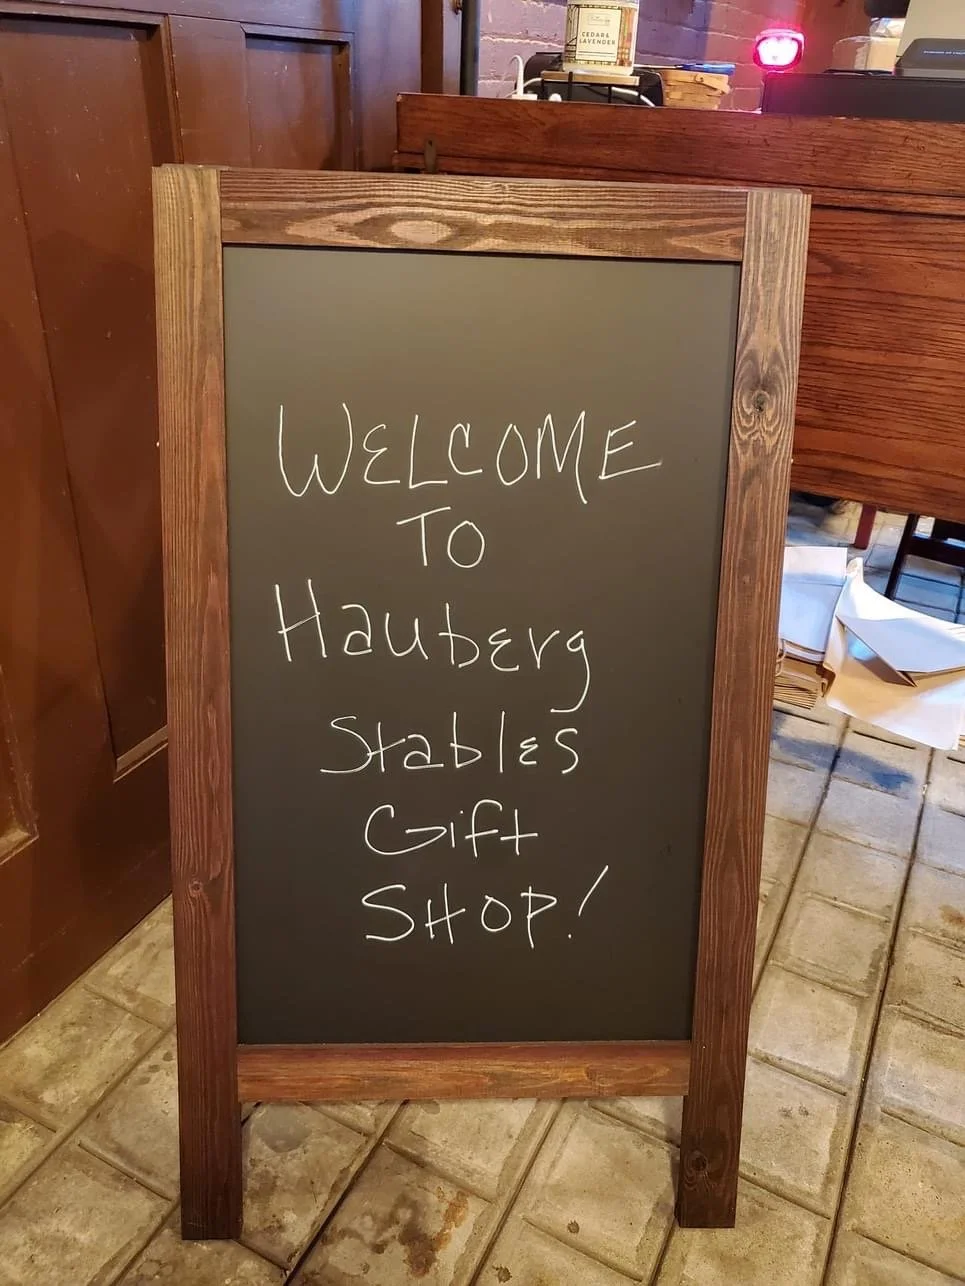 CEDAR &
LAVENDER
WELCOME
TO
Hauberg
Stables
Gift
SHOP!